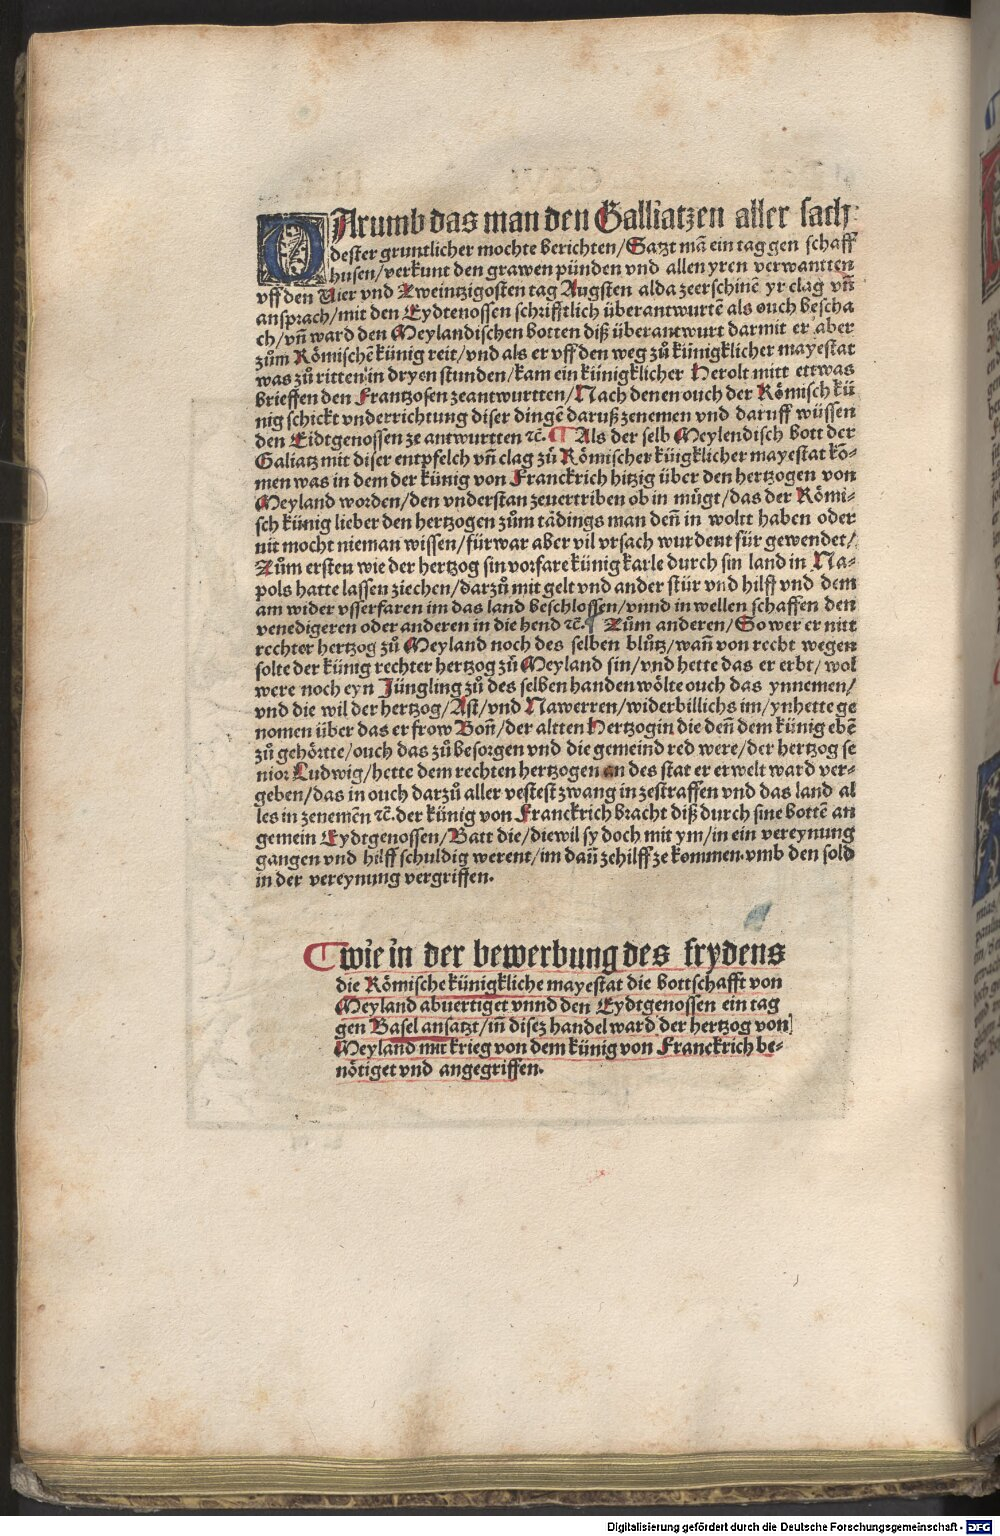 DArumb das man den Galliatzen aller sach
dester gruntlicher mochte berichten/Satzt mā ein tag gen schaff
husen/verkunt den grawen pünden vnd allen yren verwantten
vff den Vier vnd Zweintzigosten tag Augsten alda zeerschinē yr clag vn̄
ansprach/mit den Eydtenossen schrifftlich überantwurtē als ouch bescha
ch/vn̄ ward den Meylandischen botten diß überantwurt darmit er aber
zům Römischē künig reit/vnd als er vff den weg zů künigklicher mayestat
was zů ritten in dryen stunden/kam ein künigklicher Herolt mitt ettwas
brieffen den Frantzosen zeantwurtten/Nach denen ouch der Römisch kü
nig schickt vnderrichtung diser dingē daruß zenemen vnd daruff wüssen
den Eidtgenossen ze antwurtten ꝛc̄. ¶ Als der selb Meylendisch bott der
Galiatz mit diser entpfelch vn̄ clag zů Römischer küigklicher mayestat kō-
men was in dem der künig von Franckrich hitzig über den hertzogen von
Meyland worden/den vnderstan zeuertriben ob in mügt/das der Römi-
sch künig lieber den hertzogen zům tädings man den̄ in woltt haben oder
nit mocht nieman wissen/fürwar aber vil vrsach wurdent für gewendet/
Zům ersten wie der hertzog sin vorfare künig karle durch sin land in Na-
pols hatte lassen ziechen/darzů mit gelt vnd ander stür vnd hilff vnd dem
am wider vsserfaren im das land beschlossen/vnnd in wellen schaffen den
venedigeren oder anderen in die hend ꝛc̄. ¶ Zům anderen/So wer er nitt
rechter hertzog zů Meyland noch des selben blůtz/wan̄ von recht wegen
solte der künig rechter hertzog zů Meyland sin/vnd hette das er erbt/wol
were noch eyn Jüngling zů des selben handen wölte ouch das ynnemen/
vnd die wil der hertzog/Ast/vnd Nawerren/widerbillichs im/ynhette ge
nomen über das er frow Bon̄/der altten Hertzogin die den̄ dem künig ebē
zů gehörtte/ouch das zů besorgen vnd die gemeind red were/der hertzog se
nior Ludwig/hette dem rechten hertzogen an des stat er erwelt ward ver-
geben/das in ouch darzů aller vestest zwang in zestraffen vnd das land al
les in zenemēn ꝛc̄. der künig von Franckrich bracht diß durch sine bottē an
gemein Eydtgenossen/Batt die/diewil sy doch mit ym/in ein vereynung
gangen vnd hilff schuldig werent/im dan̄ zehilff ze kommen.vmb den sold
in der vereynung vergriffen.
¶ wie in der bewerbung des frydens
die Römische künigkliche mayestat die bottschafft von
Meyland abuertiget vnnd den Eydtgenossen ein tag
gen Basel ansatzt/in̄ disez handel ward der hertzog von
Meyland mit krieg von dem künig von Franckrich be-
nötiget vnd angegriffen.
Digitalisierung gefördert durch die Deutsche Forschungsgemeinschaft - DFG